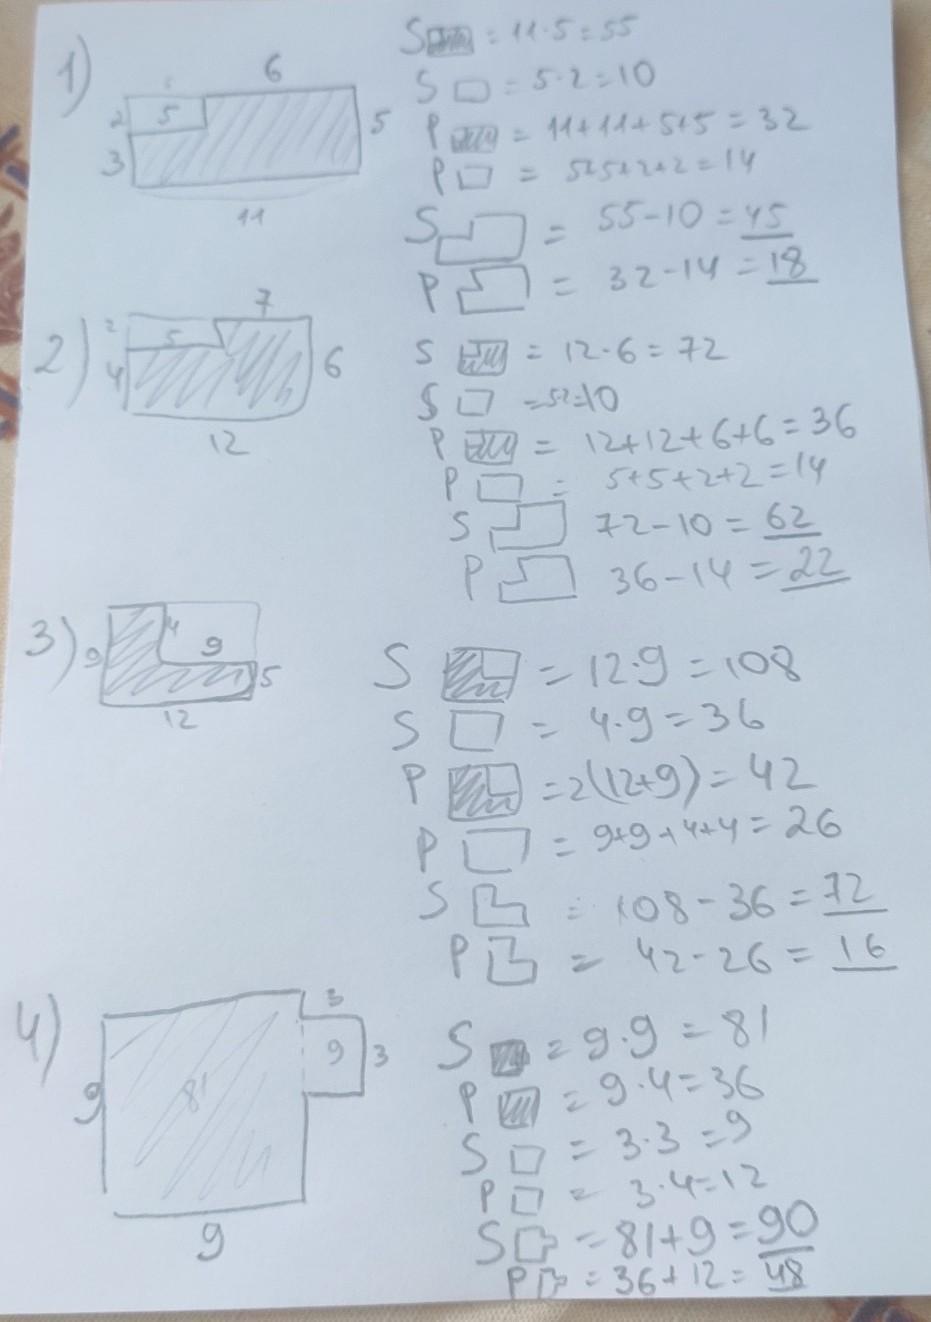 1)
6
2
5
5
3
11
S = 11·5=55
S = 5·2=10
P = 11+11+5+5=32
P = 5+5+2+2=14
S = 55-10=45
P = 32-14=18
2)
7
2
5
4
6
12
S = 12·6=72
S =5·2=10
P = 12+12+6+6=36
P = 5+5+2+2=14
S 72-10=62
P 36-14=22
3)
9
4
9
5
12
S = 12·9=108
S = 4·9=36
P =2(12+9)=42
P = 9+9+4+4=26
S = 108-36=72
P = 42-26=16
4)
3
9
9
3
81
9
S = 9·9=81
P = 9·4=36
S = 3·3=9
P = 3·4=12
S = 81+9=90
P = 36+12=48